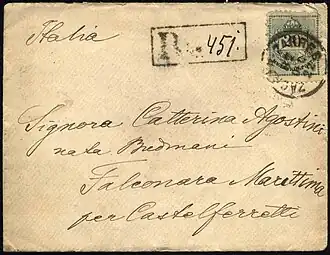 Italia
R No. 451.
Signora Catterina Agostini
nata Bredmani
Falconara Marittima
per Castelferretti